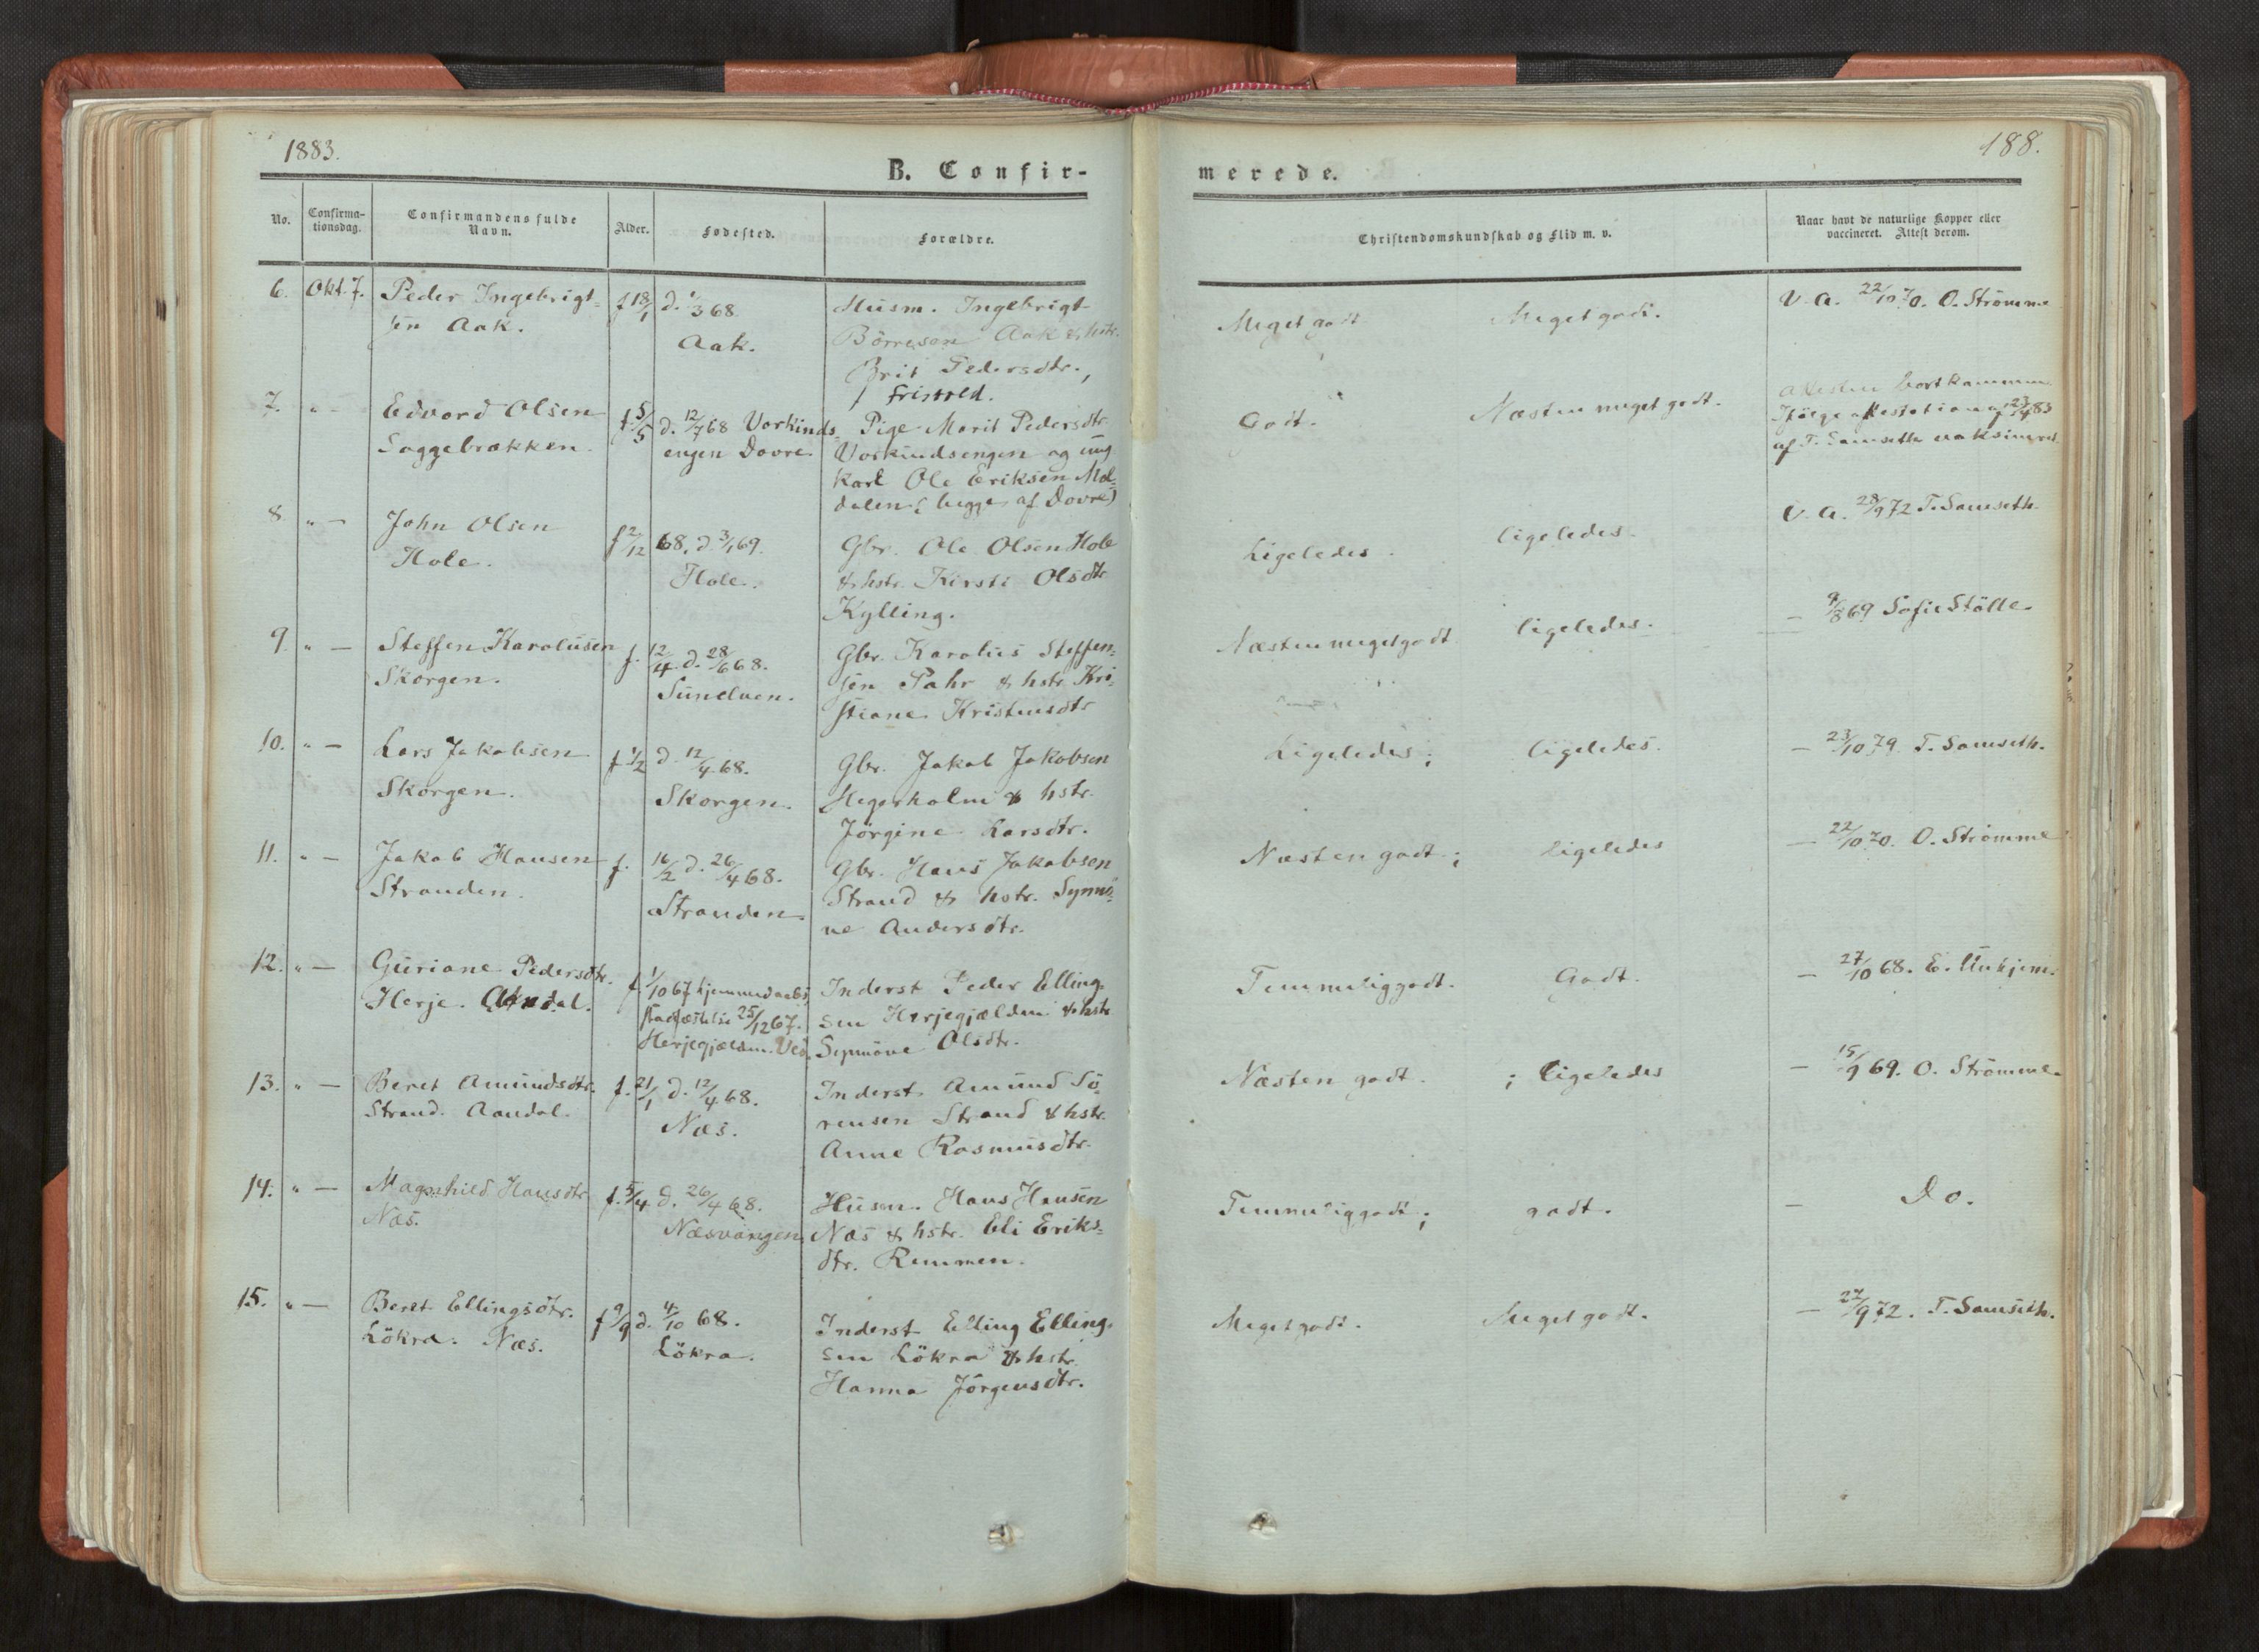 1883.
188.
B. Confir-
merede.
No.
Confirma-
tionsdag.
Confirmandens fulde
Navn.
Alder.
Fødested.
Forældre.
Christendomskundskab og Flid m. v.
Naar havt de naturlige Kopper eller
vaccineret. Attest derom.
6. Okt. 7. Peder Ingebrigt-
sen Aak.
f 18/1 d. 1/3 68.
Aak.
Husm. Ingebrigt
Börresen Aak & hstr.
Brit Pedersdtr.,
Frisvold.
Meget godt Meget godt.
V. A. 22/10 70. O. Strömme
7. " - Edvard Olsen
Soggebrækken.
f. 5/5 d. 12/7 68 Vorkinds-
engen Dovre.
Pige Marit Pedersdtr
Vorkindsengen og ung-
karl Ole Eriksen Mol-
dalen (begge af Dovre)
Godt. Næsten meget godt.
Attesten bortkommen
Ifølge Attestation af 23/4 83
af T. Samseth vaksineret
8 " - John Olsen
Hole.
f 2/12 68. d. 3/1 69.
Hole.
Gbr. Ole Olsen Hole
& hstr. Kirsti Olsdtr
Kylling.
Ligeledes. ligeledes.
V. A. 28/9 72 T. Samseth.
9. " - Steffen Karolusen
Skorgen.
f. 12/4. d. 28/6 68.
Sundven.
Gbr. Karolus Steffen-
sen Pahr & hstr. Kri-
stiane Kristensdtr
Næsten meget godt ligeledes.
- 9/8 69 Sofie Stölle.
10. " - Lars Jakobsen
Skorgen.
f 1/2 d. 12/4 68.
Skorgen.
Gbr. Jakob Jakobsen
Hegerholm & hstr.
Jörgine Larsdtr.
Ligeledes; ligeledes.
- 23/10 79. T. Samseth.
11. " - Jakob Hansen
Stranden.
f. 16/2 d. 26/4 68.
Stranden.
Gbr. Hans Jakobsen
Strand & hstr. Synnö-
ve Andersdtr.
Næsten godt; ligeledes
- 22/10 70. O. Strömme
12. " - Guriane Pedersdtr.
Herje.
f. 1/10 67 hjemmedøbt
stadfæstelse 25/12 67.
Herjegjælden. Veö.
Inderst Peder Elling-
sen Herjegjælden & hstr
Synnöve Olsdtr.
Temmeliggodt. Godt.
- 27/10 68. E. Unhjem.
13. " - Beret Amundsdtr.
Strand. Aandal.
f. 21/1 d. 12/4 68.
Næs.
Inderst Amund Sö-
rensen Strand & hstr.
Anne Rasmusdtr.
Næsten godt. ; ligeledes
- 15/9 69. O. Strömme.
14. " - Magnhild Hansdtr
Næs.
f. 5/4 d. 26/4 68.
Næsvangen.
Husm. Hans Hansen
Næs & hstr. Eli Eriks-
dtr. Remmen.
Temmeliggodt; godt.
- Do.
15. " - Beret Ellingsdtr.
Lökra. Næs.
f 9/9 d. 4/10 68.
Lökra.
Inderst Elling Elling-
sen Lökra & hstr.
Hanna Jörgensdtr.
Meget godt. Meget godt.
- 27/9 72. T. Samseth.